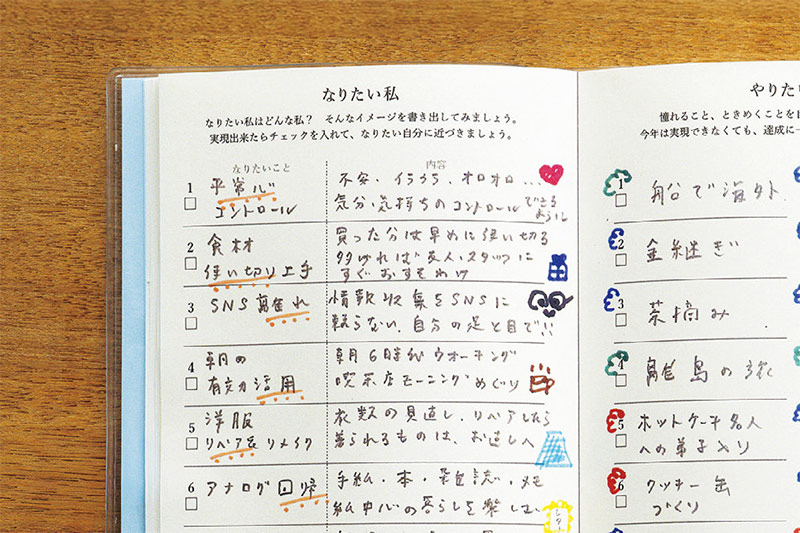 なりたい私
なりたい私はどんな私？ そんなイメージを書き出してみましょう。
実現出来たらチェックを入れて、なりたい自分に近づきましょう。
なりたいこと 内容
1
平常心
コントロール
不安・イライラ・オロオロ...
気分・気持ちのコントロールできる
ように
2
食材
使い切り上手
買った分は早めに使い切る
多ければ友人・スタッフに
すぐおすそわけ
3
SNS離れ
情報収集をSNSに
頼らない、自分の足と目で!!
4
朝の
有効活用
朝6時代ウオーキング
喫茶店モーニングめぐり
5
洋服
リペア&リメイク
衣数の見直し、リペアしたら
着られるものは、お直しへ
6
アナログ回帰
手紙・本・雑誌・メモ
紙中心の暮らしを楽しむ
やりた
憧れること、ときめくことを
今年は実現できなくても、達成に一
1
船で海外
2
金継ぎ
3
茶摘み
4
離島の旅
5
ホットケーキ名人
への弟子入り
6
クッキー缶
づくり